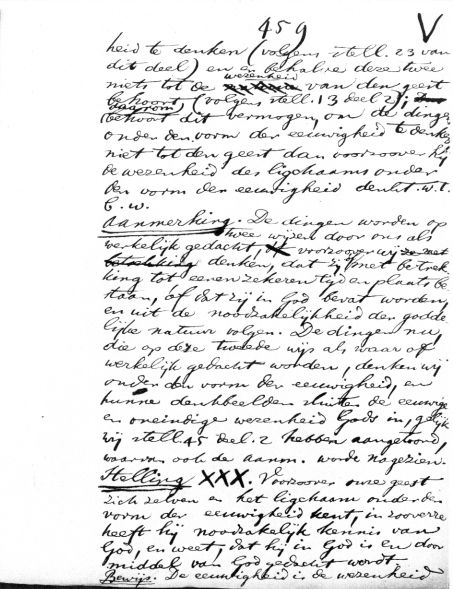 459 V
heid te denken (volgens stell. 23 van
dit deel) en en behalve deze twee
niets tot de wezenheid van den geest
behoort, (volgens stell. 13 deel 2); daarom
behoort dit vermogen, om de dingen
onder den vorm der eeuwigheid te denken
niet tot den geest dan voorzoover hij
de wezenheid des ligchaams onder
den vorm der eeuwigheid denkt w.t.
b. w.
Aanmerking. De dingen worden op
twee wijzen door ons als
werkelijk gedacht, of voorzoover wij
denken, dat zij met betrek-
king tot eenen zekeren tijd en plaats be-
staan, óf dat zij in God bevat worden,
en uit de noodzakelijkheid der godde-
lijke natuur volgen. De dingen nu,
die op deze tweede wijs als waar of
werkelijk gedacht worden, denken wij
onder den vorm der eeuwigheid, en
hunne denkbeelden sluiten de eeuwige
en oneindige wezenheid Gods in, gelijk
wij stell. 45 deel. 2 hebben aangetoond,
waarvan ook de aanm. worde nagezien.
Stelling XXX. Voorzoover onze geest
zich zelven en het ligchaam onder den
vorm der eeuwigheid kent, in zooverre
heeft hij noodzakelijk kennis van
God, en weet, dat hij in God is en door
middel van God gedacht wordt.
Bewijs. De eeuwigheid is de wezenheid